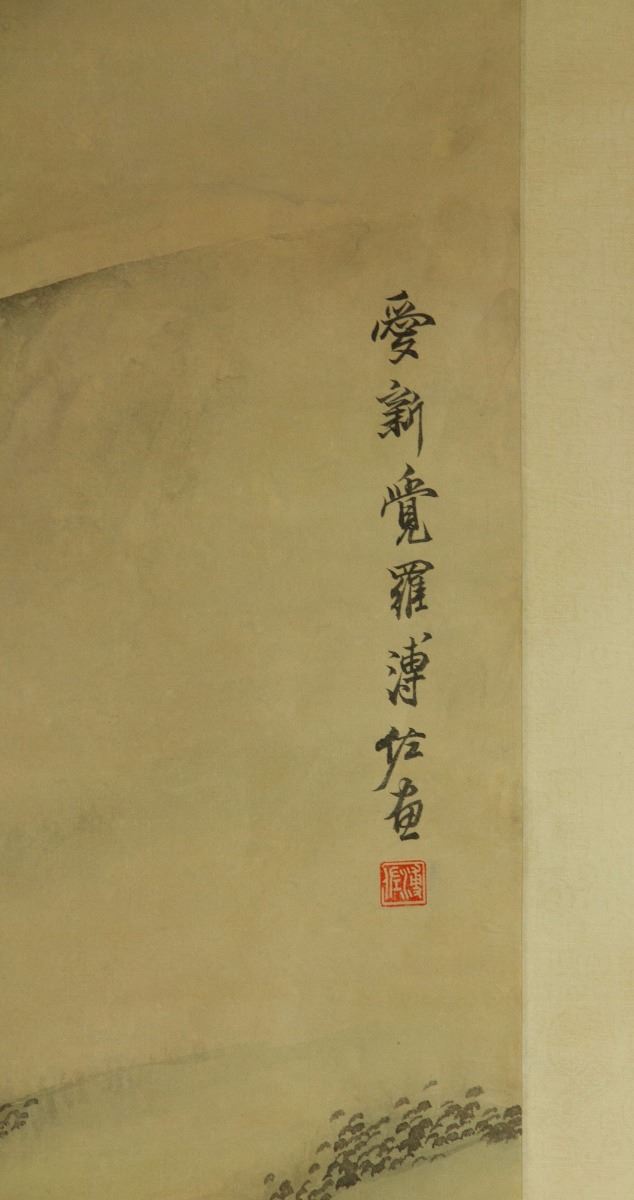 愛新覺羅溥佐画
溥佐